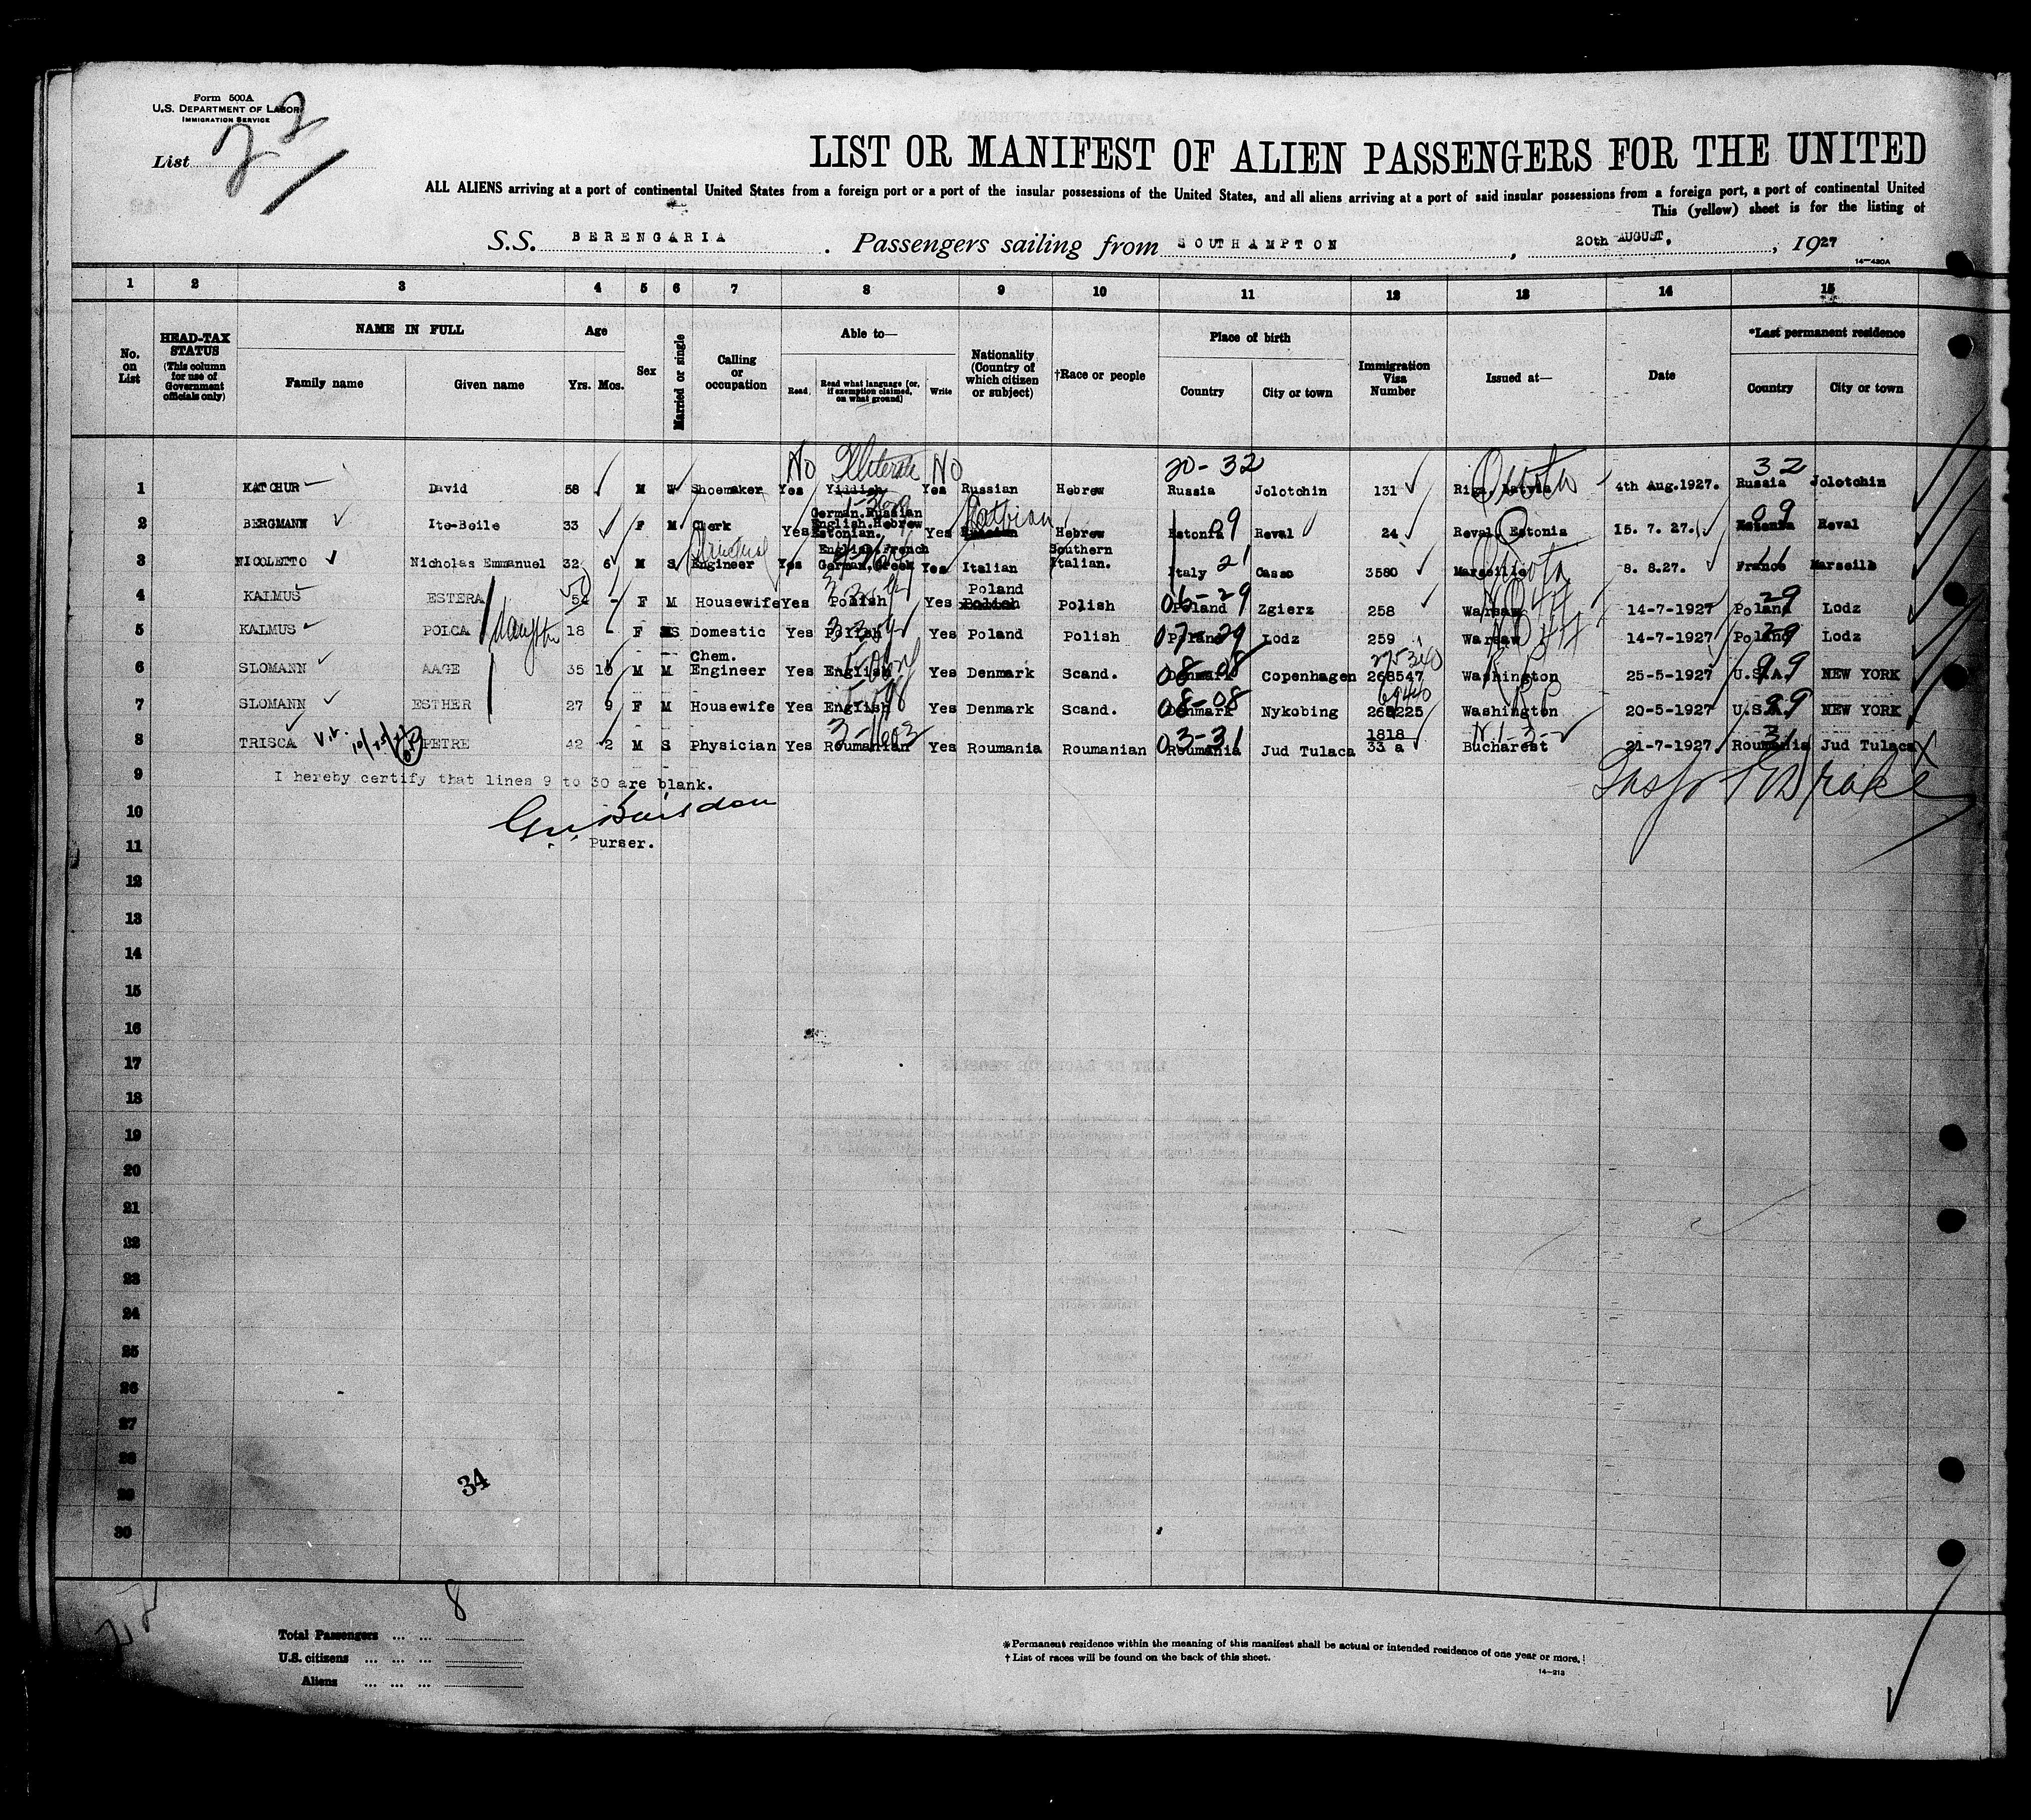 Form 500A
U.S. DEPARTMENT OF LABOR
IMMIGRATION SERVICE
List 22
LIST OR MANIFEST OF ALIEN PASSENGERS FOR THE UNITED
ALL ALIENS arriving at a port of continental United States from a foreign port or a port of the insular possessions of the United States, and all aliens arriving at a port of said insular possessions from a foreign port, a port of continental United
This (yellow) sheet is for the listing of
S.S. BERENGARIA. Passengers sailing from SOUTHAMPTON, 20th AUGUST, 1927
14—430A
1 2 3 4 5 6 7 8 9 10 11 12 13 14 15
No. on List
HEAD-TAX STATUS (This column for use of Government officials only)
NAME IN FULL
Family name Given name
Age
Yrs. Mos.
Sex
Married or single
Calling or occupation
Able to—
Read Read what language (or, if exemption claimed, on what ground) Write
Nationality (Country of which citizen or subject)
†Race or people
Place of birth
Country City or town
Immigration Visa Number
Issued at—
Date
*Last permanent residence
Country City or town
No Illiterate No 20-32 32
1 KATCHUR David 58 M W Shoemaker Yes Yiddish Yes Russian Hebrew Russia Jolotchin 131 Riga, Latvia 4th Aug.1927. Russia Jolotchin
German.Russian Latvian 09
2 BERGMANN Ite-Beile 33 F M Clerk Yes English.Hebrew Estonian. Yes Hebrew Estonia 09 Reval 24 Reval, Estonia 15. 7. 27. Estonia Reval
Structural English.French Southern
3 NICOLETTO Nicholas Emmanuel 32 6 M S Engineer Yes German,Greek Yes Italian Italian. Italy 21 Casso 3580 Marseille Quota 8. 8.27. France Marseille
Poland
4 KALMUS ESTERA 54 - F M Housewife Yes Polish Yes Polish Polish 06-29 Poland Zgierz 258 Warsaw 14-7-1927 Poland 29 Lodz
5 KALMUS POLCA daught 18 - F S Domestic Yes Polish Yes Poland Polish 07-29 Poland Lodz 259 Warsaw 14-7-1927 Poland 29 Lodz
Chem. 275340
6 SLOMANN AAGE 35 10 M M Engineer Yes English Yes Denmark Scand. 08-08 Denmark Copenhagen 268547 Washington 25-5-1927 U.S.A. 99 NEW YORK
6940
7 SLOMANN ESTHER 27 9 F M Housewife Yes English Yes Denmark Scand. 08-08 Denmark Nykobing 268225 Washington RP 20-5-1927 U.S.A. 99 NEW YORK
1818
8 TRISCA PETRE 42 2 M S Physician Yes Roumanian Yes Roumania Roumanian 03-31 Roumania Jud Tulaca 33 a Bucharest 21-7-1927 Roumania 31 Jud Tulaca
9 I hereby certify that lines 9 to 30 are blank.
10
11 Purser.
12
13
14
15
16
17
18
19
20
21
22
23
24
25
26
27
28
29
30
34
8
Total Passengers ... ...
U.S. citizens ... ... ...
Aliens ... ... ...
*Permanent residence within the meaning of this manifest shall be actual or intended residence of one year or more.
†List of races will be found on the back of this sheet.
14—213